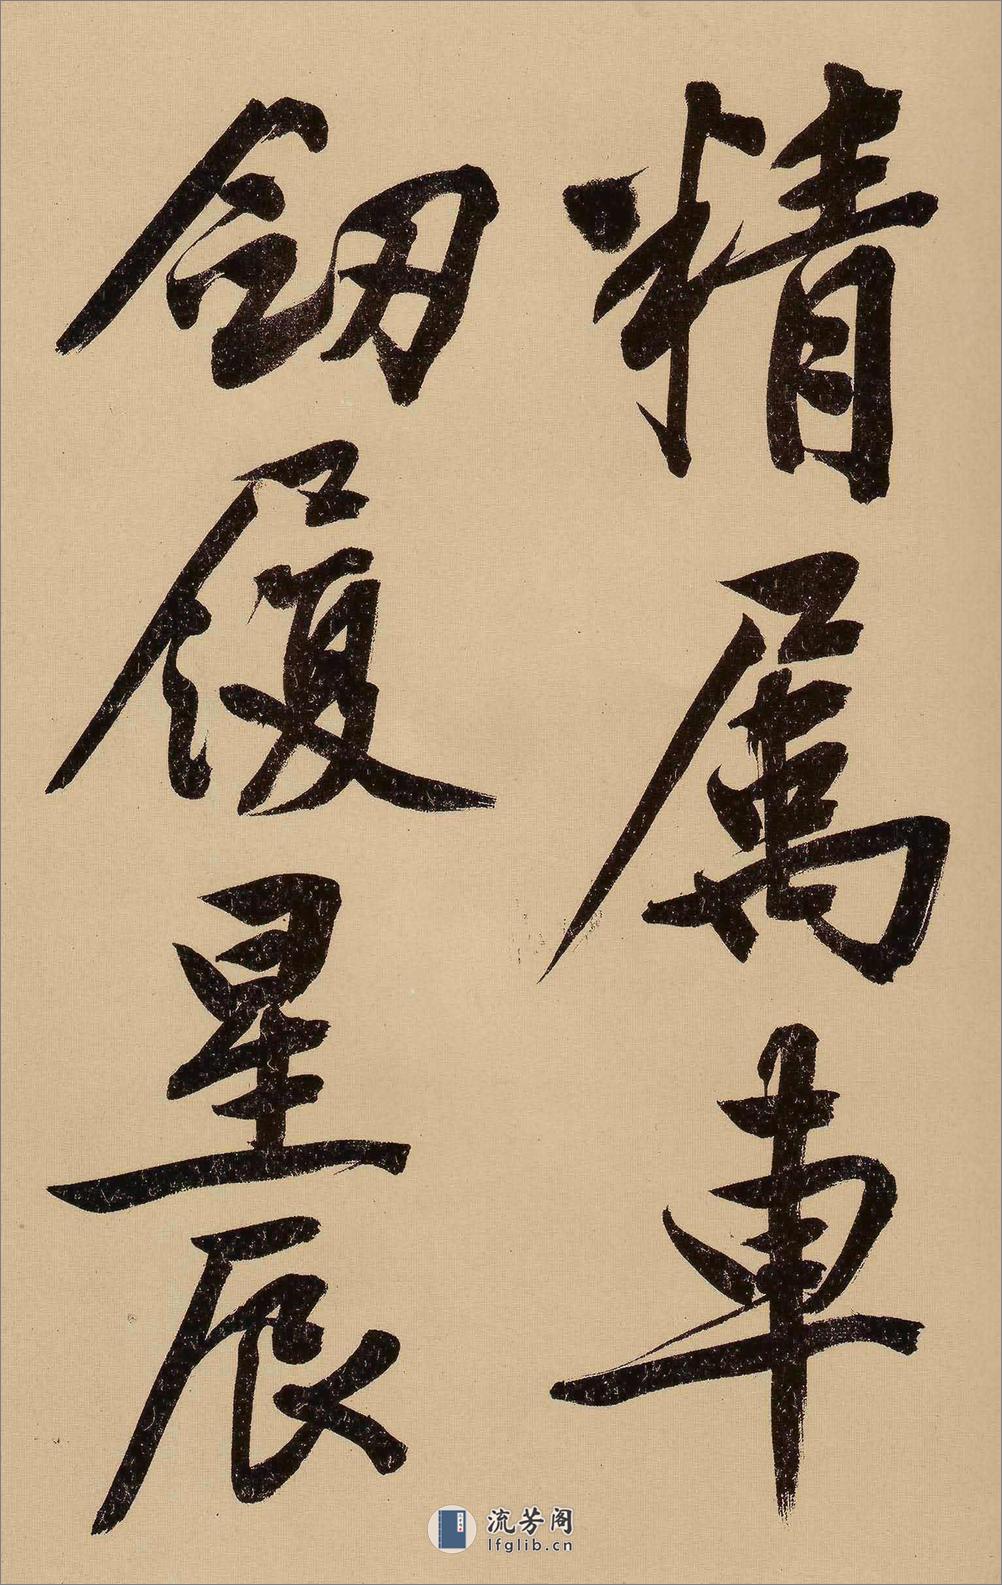 精属車
劒履星辰
流芳阁
lfglib.cn